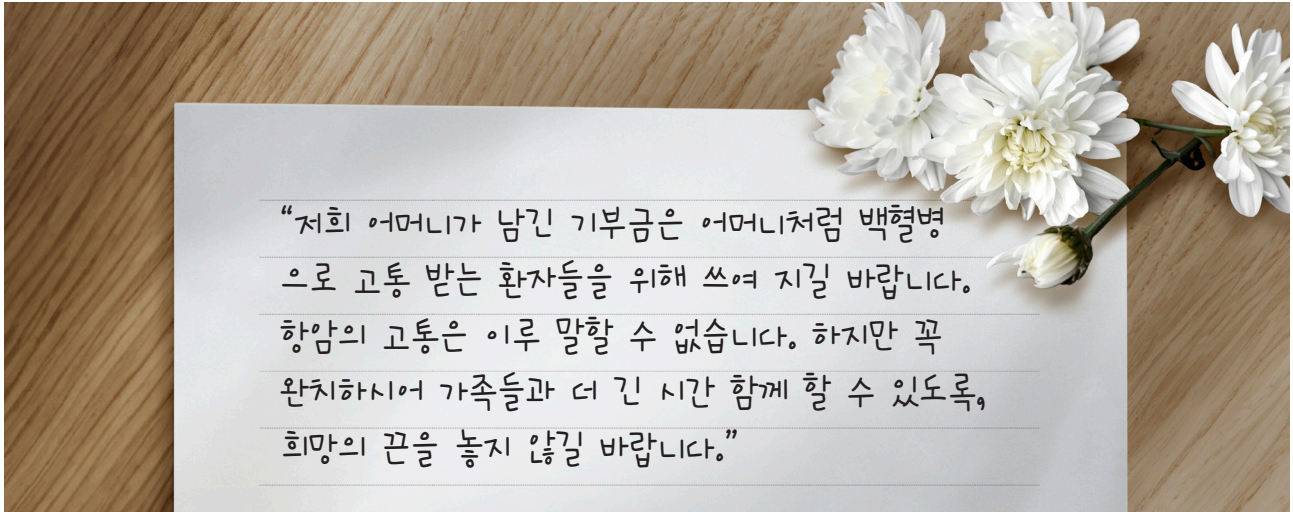 “저희 어머니가 남긴 기부금은 어머니처럼 백혈병
으로 고통 받는 환자들을 위해 쓰여 지길 바랍니다.
항암의 고통은 이루 말할 수 없습니다. 하지만 꼭
완치하시어 가족들과 더 긴 시간 함께 할 수 있도록,
희망의 끈을 놓지 않길 바랍니다.”